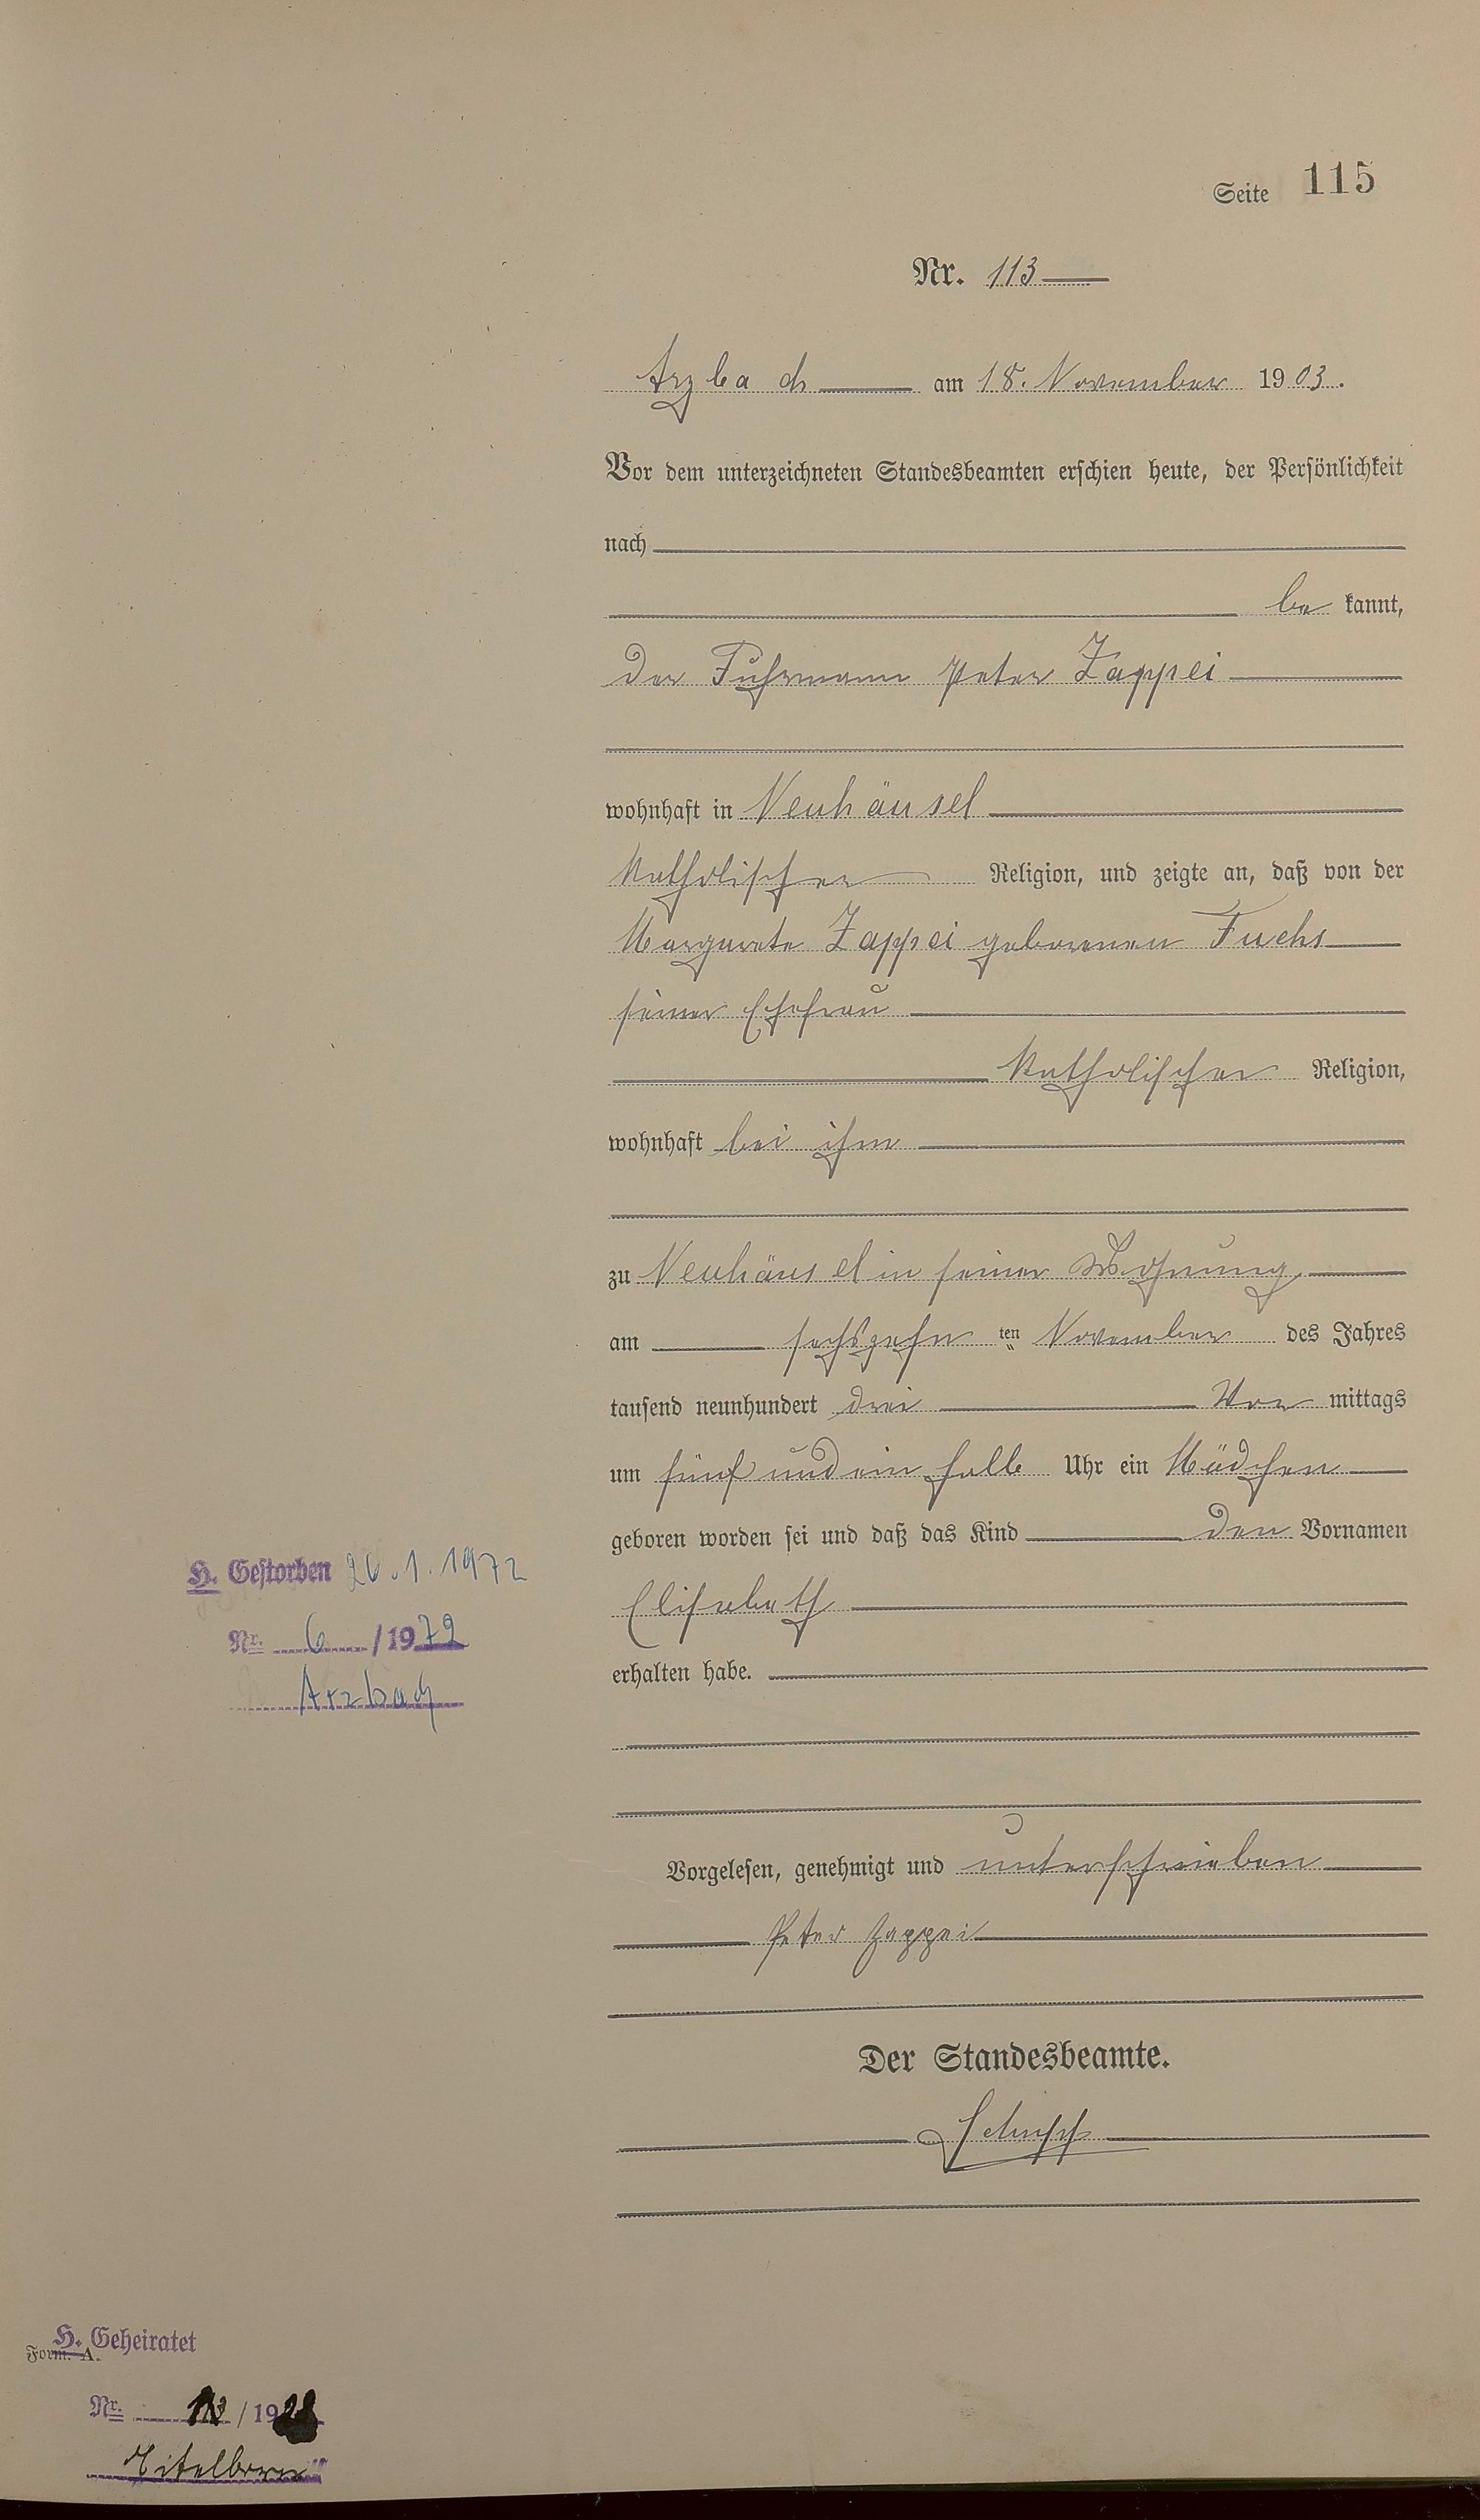 Seite 115
Nr. 113
Arzbach am 18. November 1903.
Vor dem unterzeichneten Standesbeamten erschien heute, der Persönlichkeit
nach
be kannt,
der Fuhrmann Peter Zappei
wohnhaft in Neuhäusel
katholischer Religion, und zeigte an, daß von der
Margarete Zappei geborenen Fuchs
seiner Ehefrau
katholischer Religion,
wohnhaft bei ihm
zu Neuhäusel in seiner Wohnung
am sechszehn ten November des Jahres
tausend neunhundert drei Vor mittags
um fünf und ein halb Uhr ein Mädchen
geboren worden sei und daß das Kind den Vornamen
Elisabeth
erhalten habe.
H. Gestorben 20.1.1972
Nr. 6 / 1972
Arzbach
Vorgelesen, genehmigt und unterschrieben
Peter Zappei
Der Standesbeamte.
H. Geheiratet
Form. A.
Nr. / 19
Eitelborn